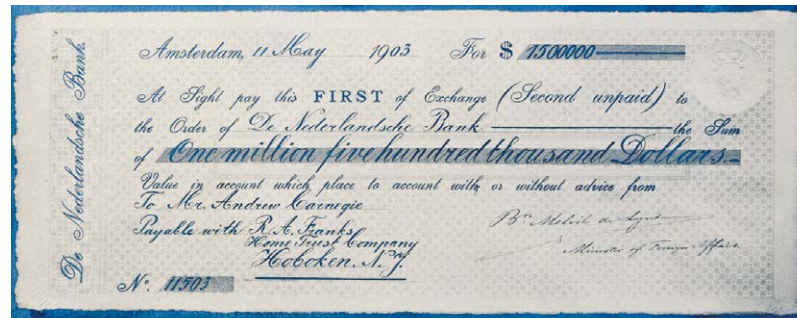 De Nederlandsche Bank.
Amsterdam, 11 May 1903 For $ 1500000
At Sight pay this FIRST of Exchange (Second unpaid) to
the Order of De Nederlandsche Bank the Sum
of One million five hundred thousand Dollars.
Value in account which place to account with or without advice from
To Mr. Andrew Carnegie
Payable with R. A. Franks
Home Trust Company
Hoboken. N. J.
Bn Melvil de Lynden
Minister of Foreign Affairs.
No. 11503